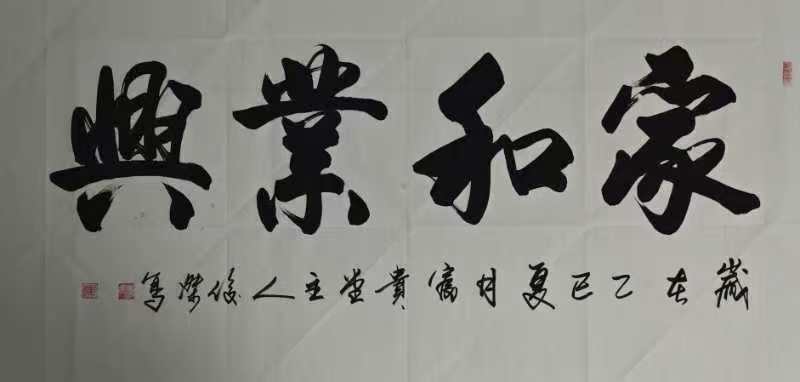 家和業興
歲在乙巳夏月富貴堂主人俊傑寫